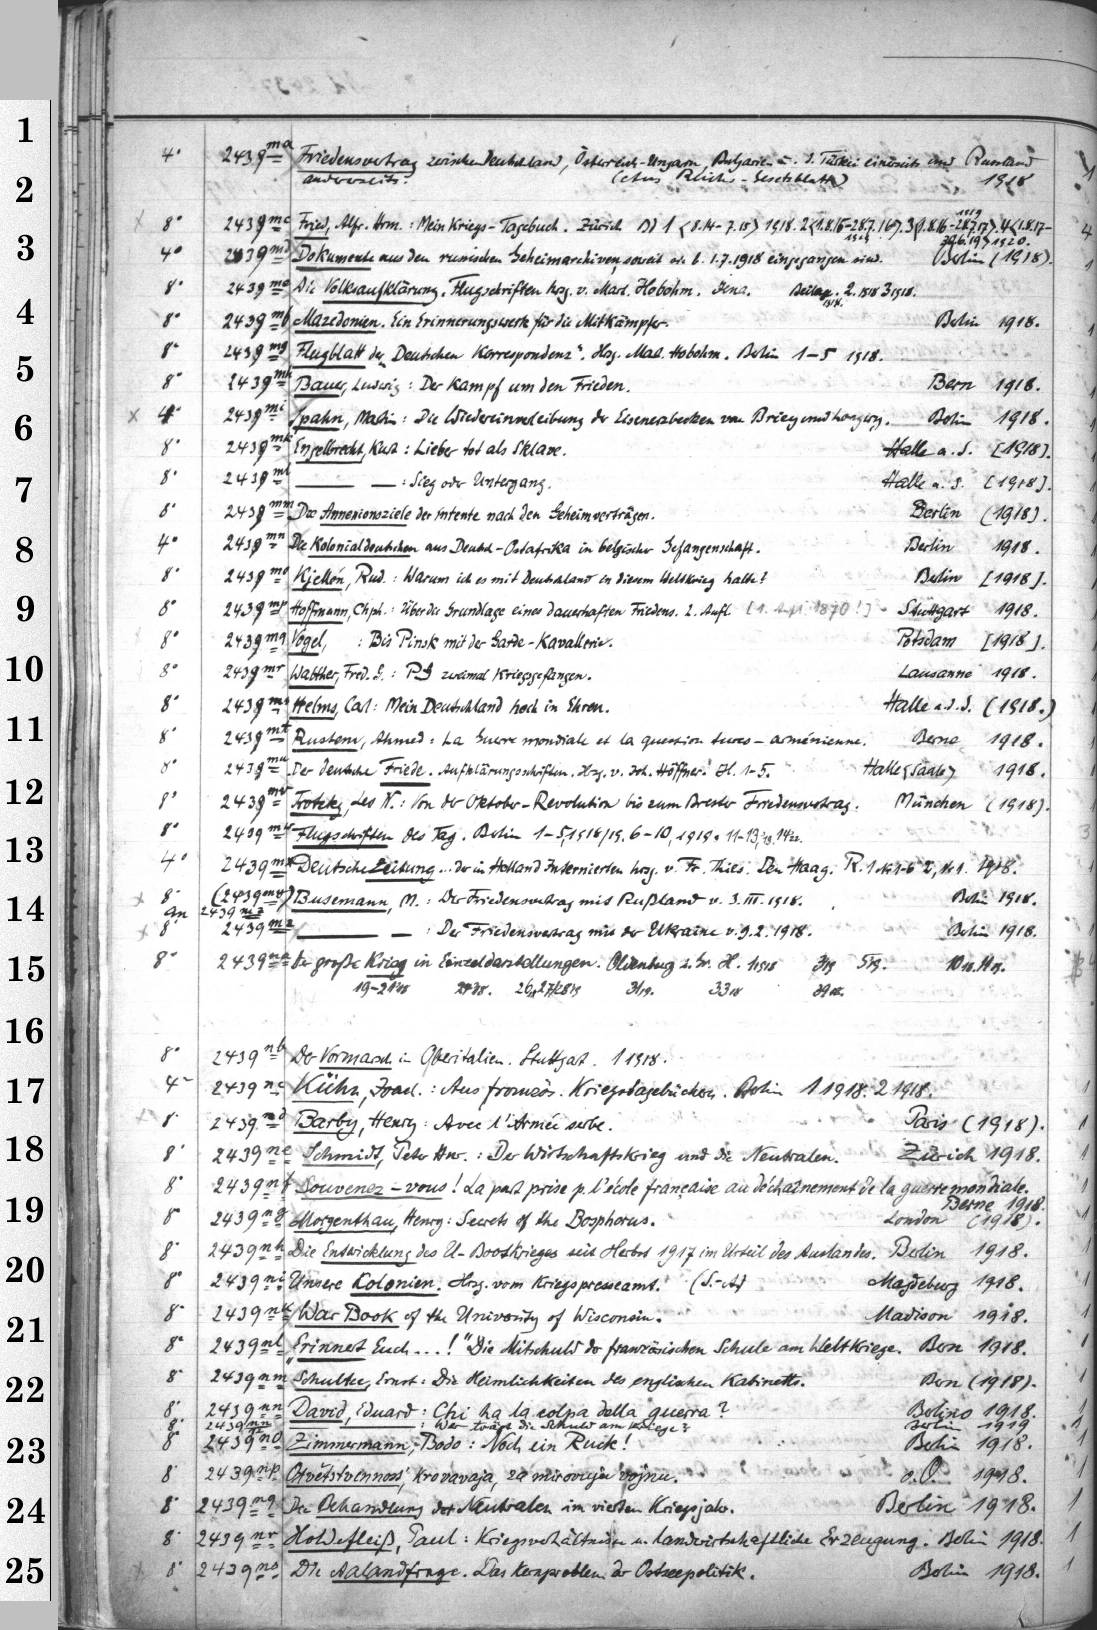 1
4° 2439 ma Friedensvertrag zwischen Deutschland, Österreich-Ungarn, Bulgarien u. d. Türkei einerseits und Russland
2
andrerseits. (Aus Reichs-Gesetzblatt) 1918
8° 2439 mc Fried, Alfr. Hrm.: Mein Kriegs-Tagebuch. Zürich Bd 1 <8.14-7.15> 1918. 4
3
4° 2439 md Dokumente aus den russischen Geheimarchiven, soweit sie b. 1.7.1918 eingegangen sind. Berlin (1918).
8° 2439 me Die Volksaufklärung. Flugschriften hrsg. v. Mart. Hobohm. Jena. 2. 1918 3 1918.
4
8° 2439 mf Mazedonien. Ein Erinnerungswerk für die Mitkämpfer. Berlin 1918.
8° 2439 mg Flugblatt der „Deutschen Korrespondenz". Hrsg. Mart. Hobohm. Berlin 1-5 1918.
5
8° 2439 mh Bauer, Ludwig: Der Kampf um den Frieden. Bern 1918.
6
x 4° 2439 mi Spahn, Martin: Die Wiedereinverleibung der Eisenerzbecken von Briey und Longwy. Berlin 1918.
8° 2439 mk Engelbrecht, Kurt: Lieber tot als Sklave. Halle a. S. [1918].
7
8° 2439 ml ——— — : Sieg oder Untergang. Halle a. S. [1918].
8° 2439 mm Die Annexionsziele der Entente nach den Geheimverträgen. Berlin (1918).
8
4° 2439 mn Die Kolonialdeutschen aus Deutsch-Ostafrika in belgischer Gefangenschaft. Berlin 1918.
8° 2439 mo Kjellén, Rud.: Warum ich es mit Deutschland in diesem Weltkrieg halte? Berlin [1918].
9
8° 2439 mp Hoffmann, Chph.: Über die Grundlage eines dauerhaften Friedens. 2. Aufl. [1. Aufl. 1870!] Stuttgart 1918.
8° 2439 mq Vogel, : Bis Pinsk mit der Garde-Kavallerie. Potsdam [1918].
10
8° 2439 mr Walther, Fred. G.: PG zweimal Kriegsgefangen. Lausanne 1918.
8° 2439 ms Helms, Carl: Mein Deutschland hoch in Ehren. Halle a. d. S. (1918.)
11
8° 2439 mt Rustem, Ahmed: La Guerre mondiale et la question turco-arménienne. Berne 1918.
8° 2439 mu Der deutsche Friede. Aufklärungsschriften. Hrsg. v. Joh. Höffner. H. 1-5. Halle <Saale> 1918.
12
8° 2439 mv Trotzky, Leo N.: Von der Oktober-Revolution bis zum Brester Friedensvertrag. München (1918).
8° 2439 mw Flugschriften des Tag. Berlin 1-5, 1918/19. 6-10, 1919. 3
13
4° 2439 mx Deutsche Zeitung ... der in Holland Internierten hrsg. v. Fr. Thies. Den Haag. 1918.
x 8° (2439 my) Busemann, M.: Der Friedensvertrag mit Rußland v. 3. III. 1918. Berlin 1918.
14
an 2439 mz
x 8° 2439 mz ——— — : Der Friedensvertrag mit der Ukraine v. 9. 2. 1918. Berlin 1918.
15
8° 2439 na Der große Krieg in Einzeldarstellungen. Oldenburg i. Gr. H. 1 1918
16
8° 2439 nb Der Vormarsch in Oberitalien. Stuttgart. 1 1918.
17
4° 2439 nc Kühn, Joach.: Aus französ. Kriegstagebüchern. Berlin 1 1918. 2 1918.
8° 2439 nd Barby, Henry: Avec l'Armée serbe. Paris (1918).
18
8° 2439 ne Schmidt, Peter Hnr.: Der Wirtschaftskrieg und die Neutralen. Zürich 1918.
8° 2439 nf Souvenez-vous! La part prise p. l'école française au déchaînement de la guerre mondiale.
Berne 1918.
19
8° 2439 ng Morgenthau, Henry: Secrets of the Bosphorus. London (1918).
8° 2439 nh Die Entwicklung des U-Bootkrieges seit Herbst 1917 im Urteil des Auslandes. Berlin 1918.
20
8° 2439 ni Unsere Kolonien. Hrsg. vom Kriegspresseamt. (S.-A) Magdeburg 1918.
8° 2439 nk War Book of the University of Wisconsin. Madison 1918.
21
8° 2439 nl „Erinnert Euch ...!" Die Mitschuld der französischen Schule am Weltkriege. Bern 1918.
22
8° 2439 nm Schultze, Ernst: Die Heimlichkeiten des englischen Kabinetts. Bern (1918).
8° 2439 nn David, Eduard: Chi ha la colpa della guerra? Berlino 1918.
8° 2439 nn ——— : Wer trägt die Schuld am Kriege? Berlin 1919
23
8° 2439 no Zimmermann, Bodo: Noch ein Ruck! Berlin 1918.
8° 2439 np Otvětstvennost', krovavaja, za mirovuju vojnu. o. O. 1918.
24
8° 2439 nq Die Behandlung der Neutralen im vierten Kriegsjahr. Berlin 1918.
8° 2439 nr Holdefleiß, Paul: Kriegsverhältnisse u. landwirtschaftliche Erzeugung. Berlin 1918.
25
x 8° 2439 ns Die Aalandfrage. Das Kernproblem der Ostseepolitik. Berlin 1918.